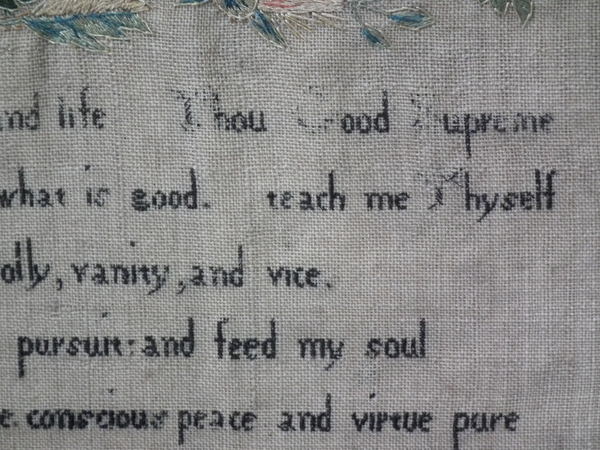 and life Thou Good Supreme
what is good. teach me Thyself
olly, vanity, and vice.
pursuit: and feed my soul
conscious peace and virtue pure